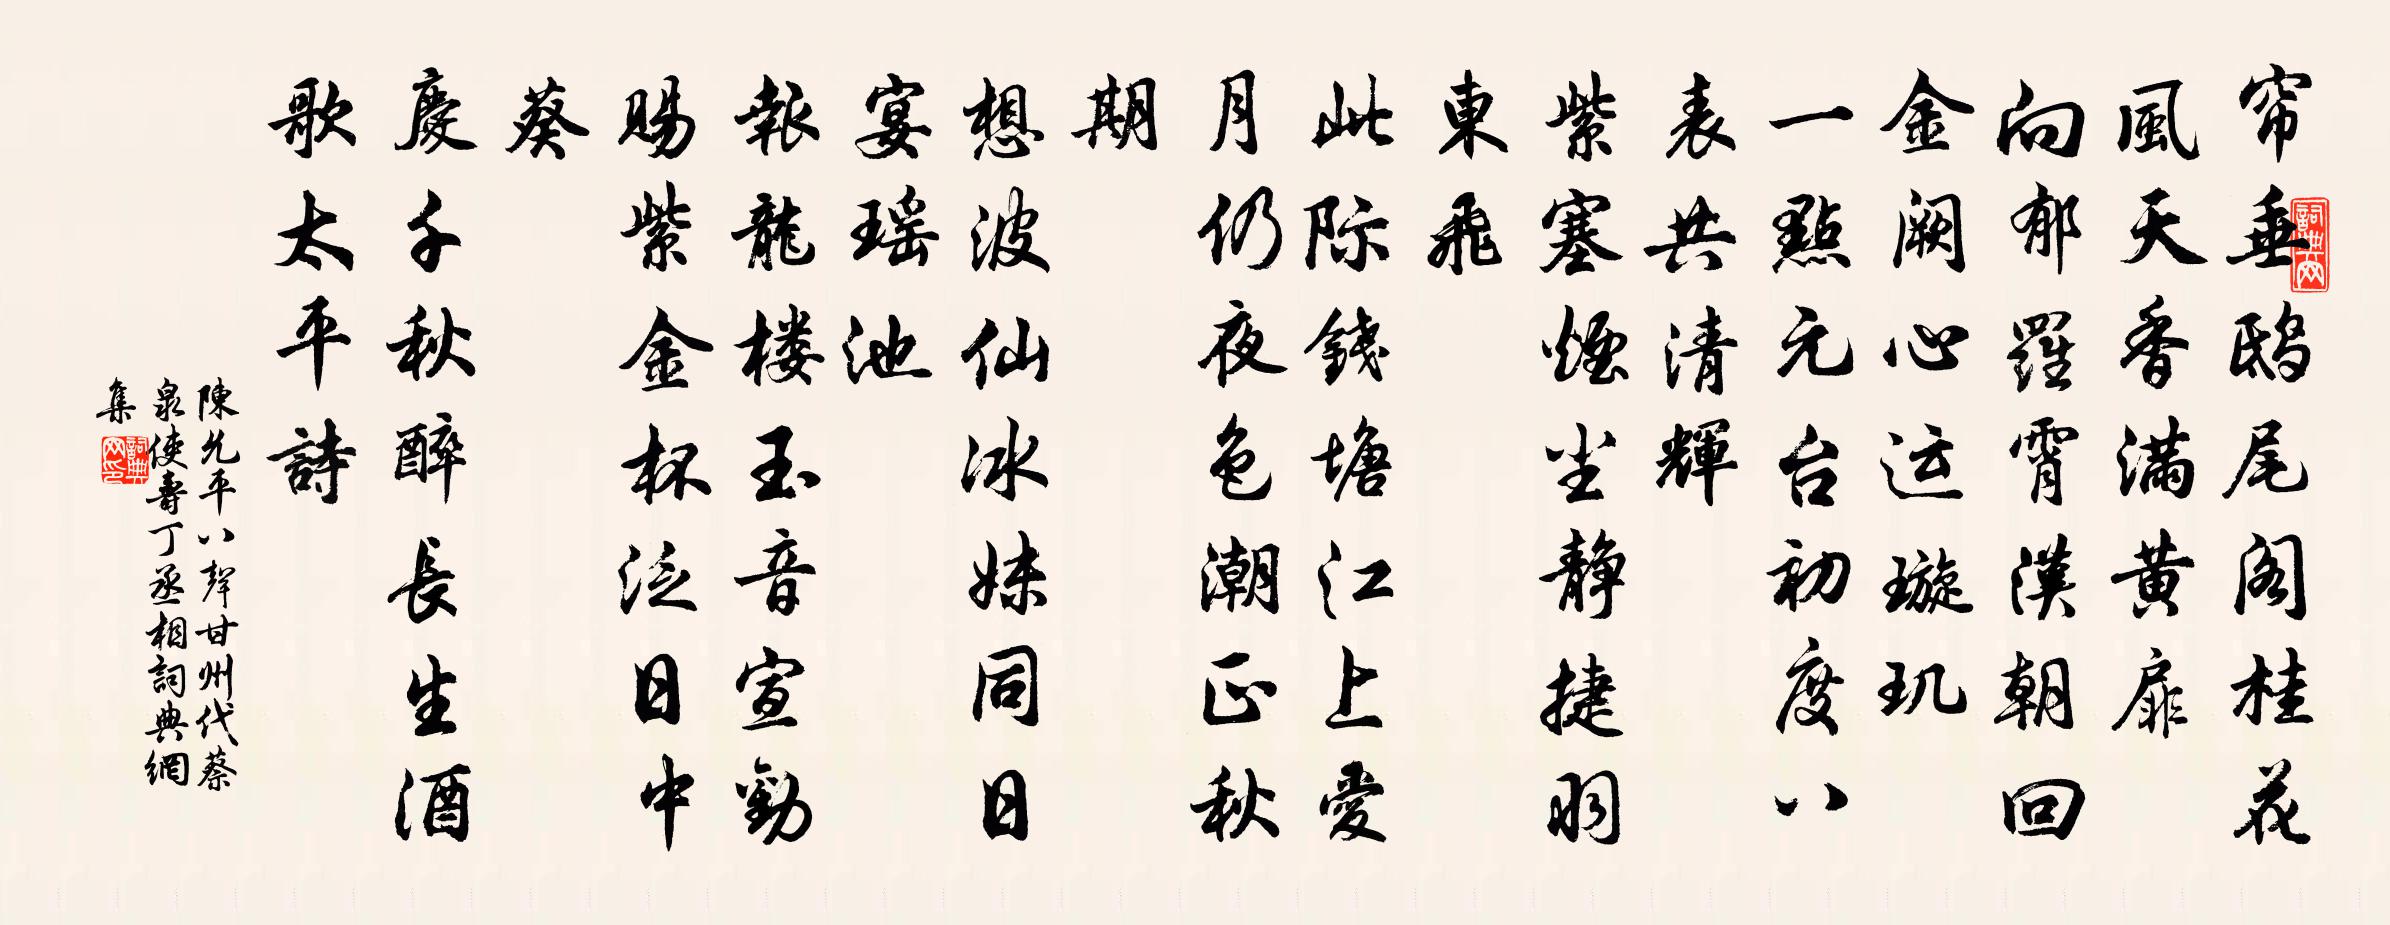 帘垂鸱尾阁桂花
風天香满黄扉
向郁羅霄漢朝回
金阙心运璇玑
一點元台初度八
表共清輝
紫塞煙尘静捷羽
東飛
此际錢塘江上愛
月仍夜色潮正秋
期
想波仙冰姝同日
宴瑶池
報龍楼玉音宣勸
賜紫金杯泛日中
葵
慶千秋醉長生酒
歌太平詩
陳允平八聲甘州代蔡
泉使壽丁丞相詞典網
集
詞典网
詞典网印